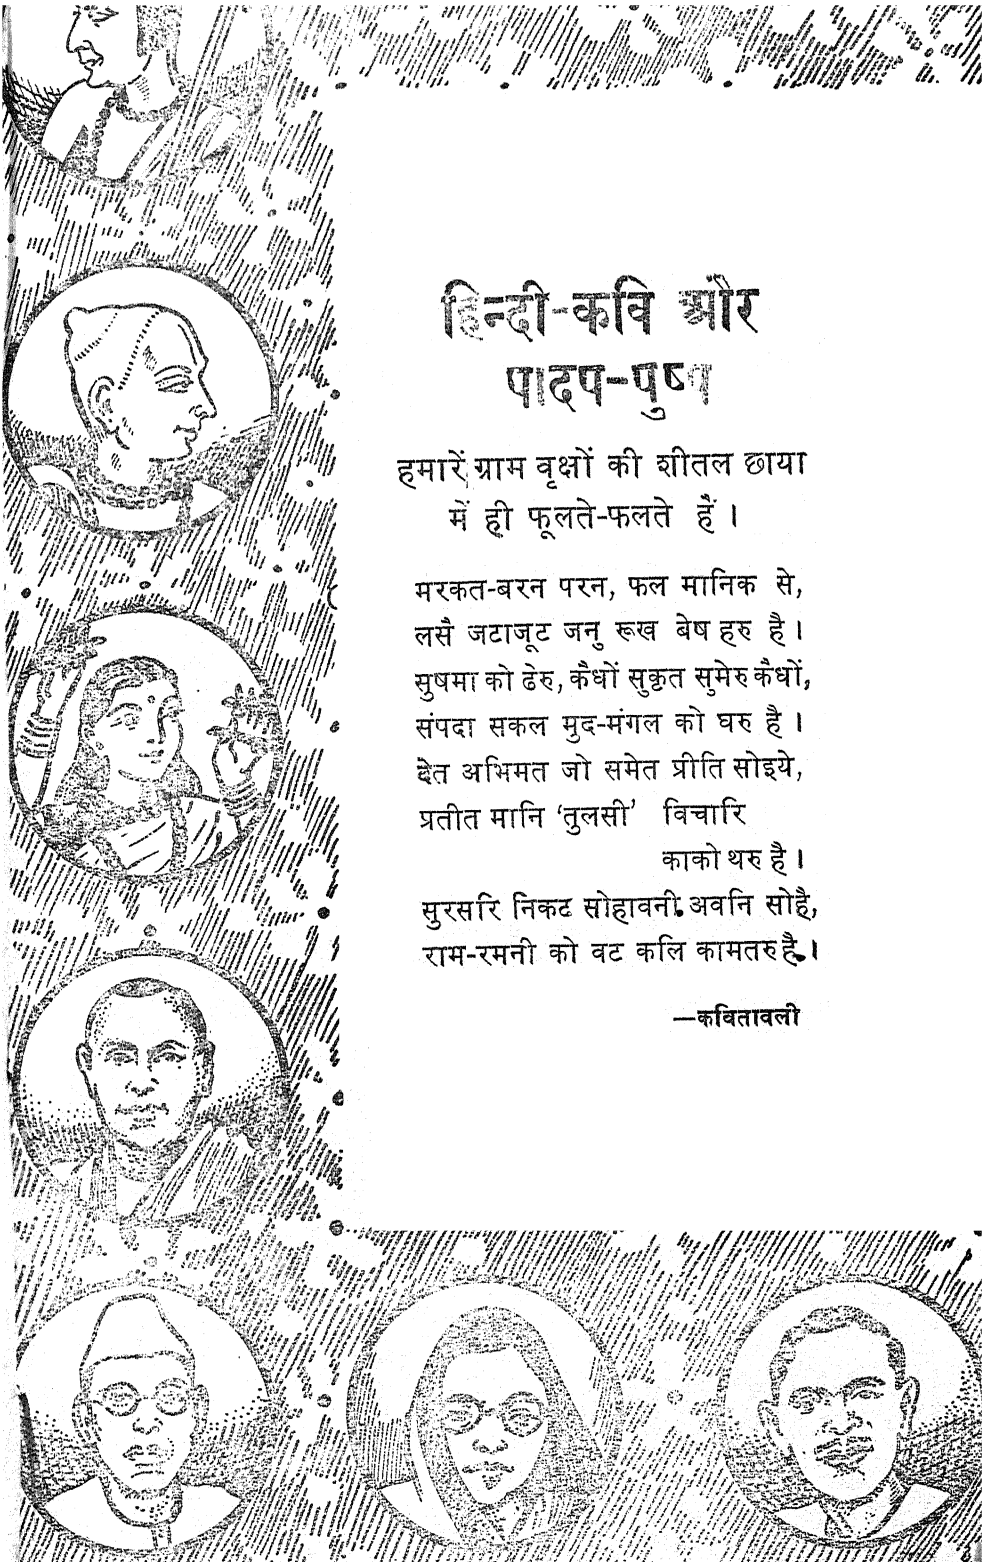 हिन्दी-कवि और
पादप-पुष्प
हमारें ग्राम वृक्षों की शीतल छाया
में ही फूलते-फलते हैं ।
मरकत-बरन परन, फल मानिक से,
लसै जटाजूट जनु रूख बेष हरु है ।
सुषमा को ढेरु, कैधौं सुकृत सुमेरु कैधौं,
संपदा सकल मुद-मंगल को घरु है ।
देत अभिमत जो समेत प्रीति सोइये,
प्रतीत मानि ‘तुलसी’ विचारि
काको थरु है ।
सुरसरि निकट सोहावनी अवनि सोहै,
राम-रमनी को वट कलि कामतरु है ।
—कवितावली